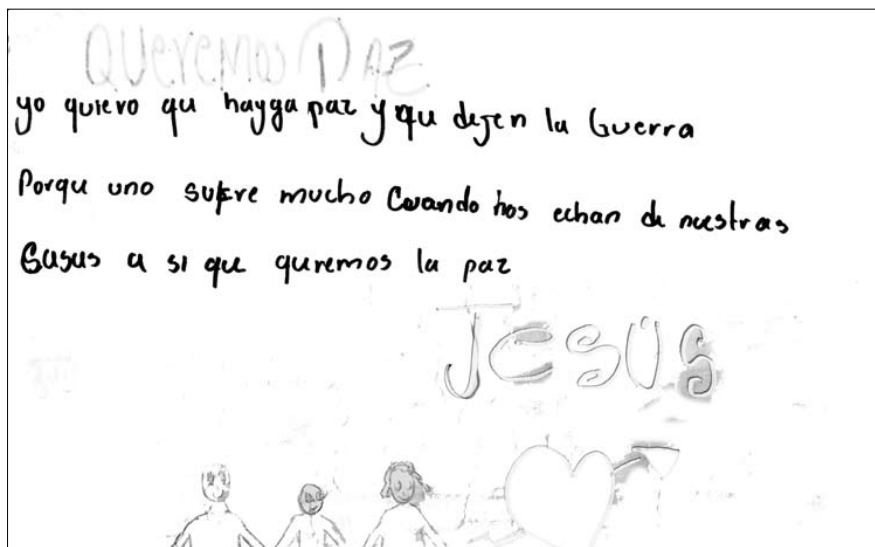 QUEREMOS PAZ
yo quiero qu hayga paz y qu dejen la Guerra
Porqu uno sufre mucho Cuando nos echan de nuestras
Casas a si que quremos la paz
JESUS